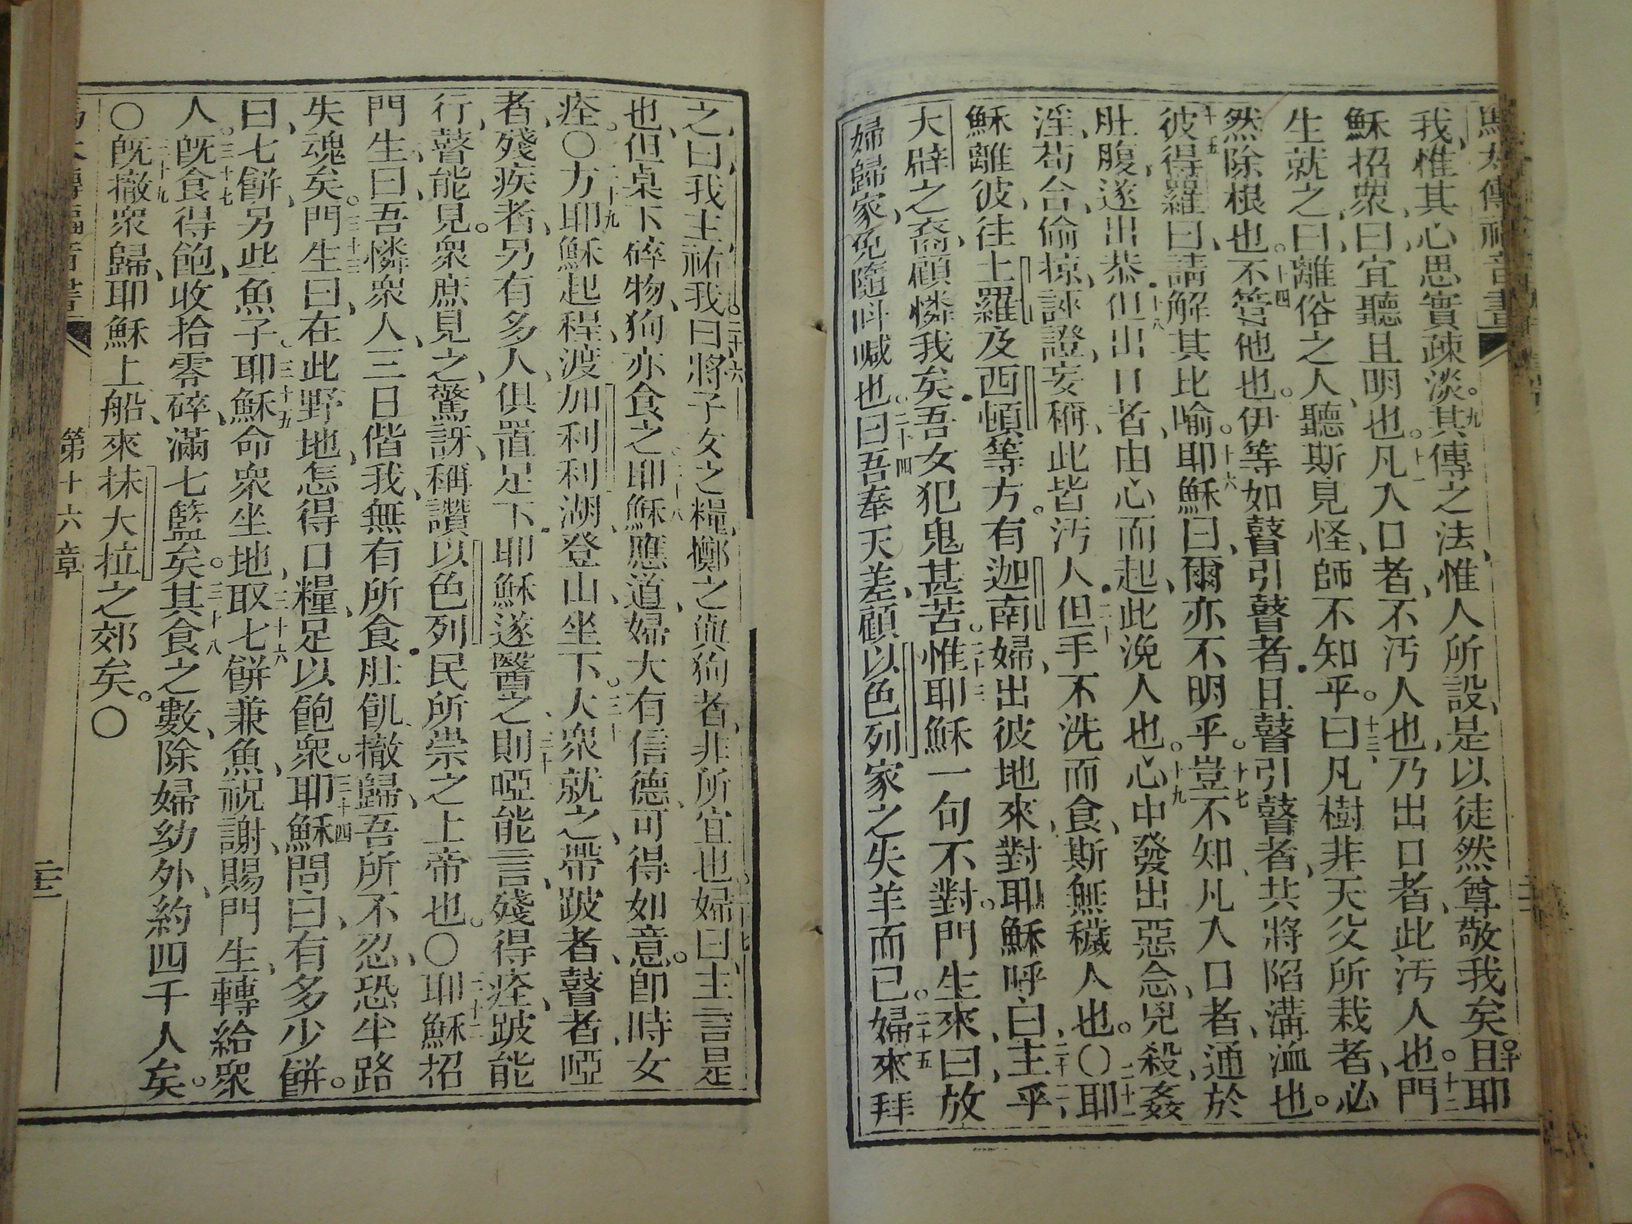 馬太傳福音書
我惟其心思實疎淡。九其傳之法、惟人所設、是以徒然尊敬我矣。十且耶
穌招衆、曰宜聽且明也。十一凡入口者、不汚人也、乃出口者、此汚人也。十二門
生就之、曰離俗之人、聽斯見怪、師不知乎。十三曰凡樹非天父所栽者、必
然除根也。十四不管他也。伊等如瞽引瞽者、且瞽引瞽者、共將陷溝洫也。
十五彼得羅曰、請解其比喻。十六耶穌曰、爾亦不明乎。十七豈不知凡入口者、通於
肚腹、遂出恭、十八但出口者、由心而起、此浼人也。十九心中發出惡念、兇殺、姦
淫、苟合、偷掠、誣證、妄稱、二十此皆汚人、但手不洗而食、斯無穢人也。○二十一耶
穌離彼、往土羅及西頓等方。二十二有迦南婦、出彼地來、對耶穌呼曰、主乎、
大辟之裔、顧憐我矣、吾女犯鬼甚苦。二十三惟耶穌一句不對。門生來曰、放
婦歸家、免隨呌喊也。二十四曰吾奉天差、顧以色列家之失羊而已。二十五婦來拜
之、曰我主祐我。二十六曰將子女之糧、擲之與狗者、非所宜也。二十七婦曰、主言是
也、但桌下碎物、狗亦食之。二十八耶穌應道、婦大有信德、可得如意。卽時女
痊。○二十九方耶穌起程、渡加利利湖、登山坐下。三十大衆就之、帶跛者、瞽者、啞
者、殘疾者、另有多人、俱置足下、耶穌遂醫之、三十一則啞能言、殘得痊、跛能
行、瞽能見。衆庶見之驚訝、稱讚以色列民所崇之上帝也。○三十二耶穌招
門生、曰、吾憐衆人、三日偕我、無有所食、肚飢撤歸、吾所不忍、恐半路
失魂矣。三十三門生曰、在此野地、怎得口糧、足以飽衆。三十四耶穌問曰、有多少餅。
曰七餅、另些魚子。三十五耶穌命衆坐地、三十六取七餅兼魚、祝謝、賜門生、轉給衆
人。三十七旣食得飽、收拾零碎、滿七籃矣。三十八其食之數、除婦幼外、約四千人矣。
○三十九旣撤衆歸、耶穌上船、來抹大拉之郊矣。○
第十六章